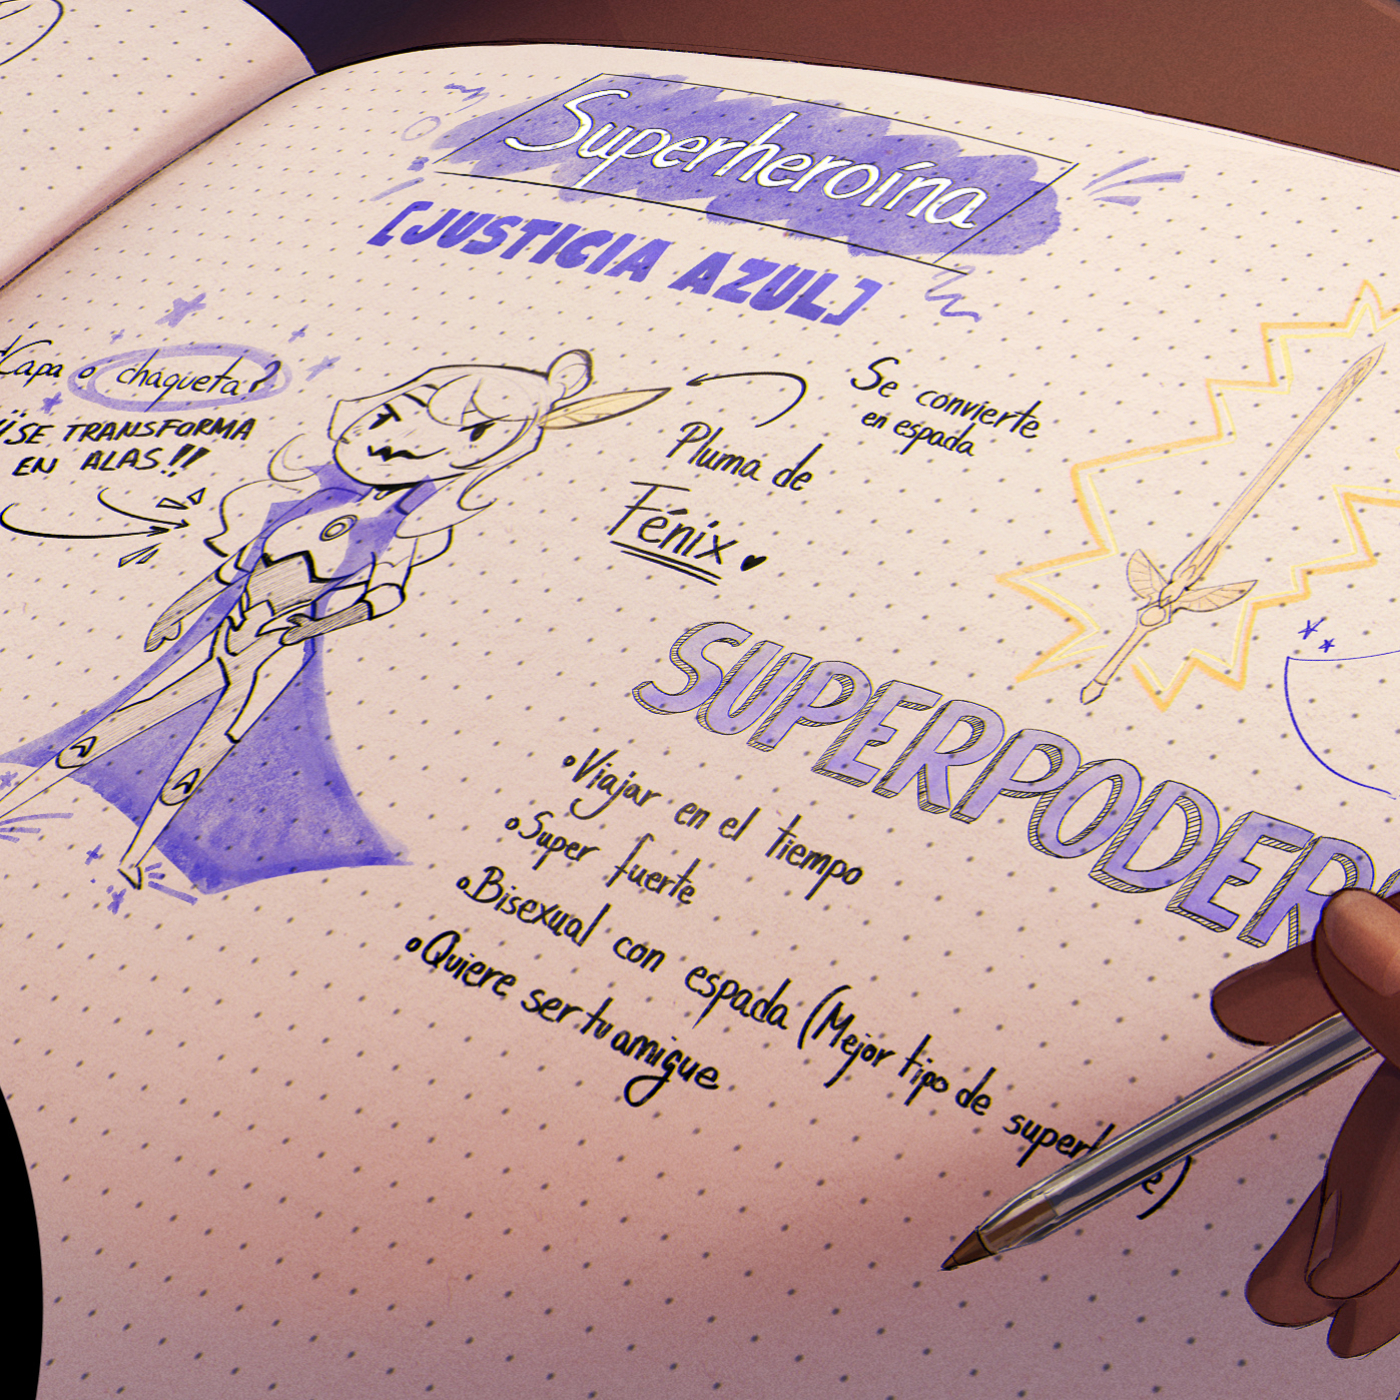 Superheroína
[JUSTICIA AZUL]
¿Capa o chaqueta?
¡¡SE TRANSFORMA
EN ALAS!!
Se convierte
en espada
Pluma de
Fénix
• Viajar en el tiempo
• Super fuerte
• Bisexual con espada (Mejor tipo de
• Quiere ser tu amigue